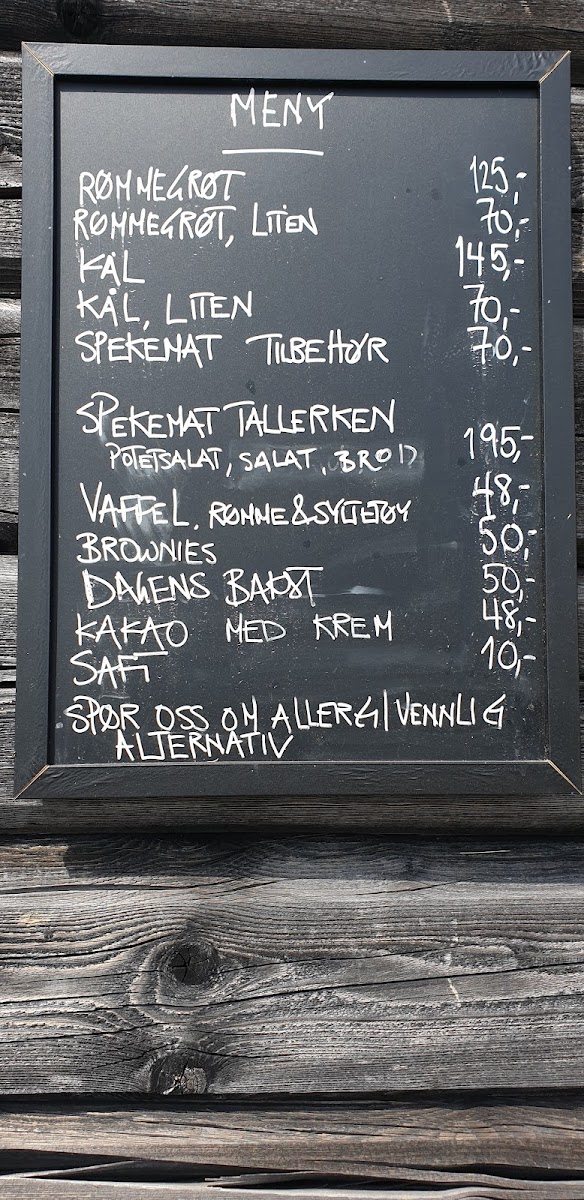 MENY
RØMMEGRØT 125,-
RØMMEGRØT, LITEN 70,-
KÅL 145,-
KÅL, LITEN 70,-
SPEKEMAT TILBEHØR 70,-
SPEKEMAT TALLERKEN
POTETSALAT, SALAT, BRØD 195,-
VAFFEL, RØMME & SYLTETØY 48,-
BROWNIES 50,-
DAGENS BAKST 50,-
KAKAO MED KREM 48,-
SAFT 10,-
SPØR OSS OM ALLERGIVENNLIG
ALTERNATIV